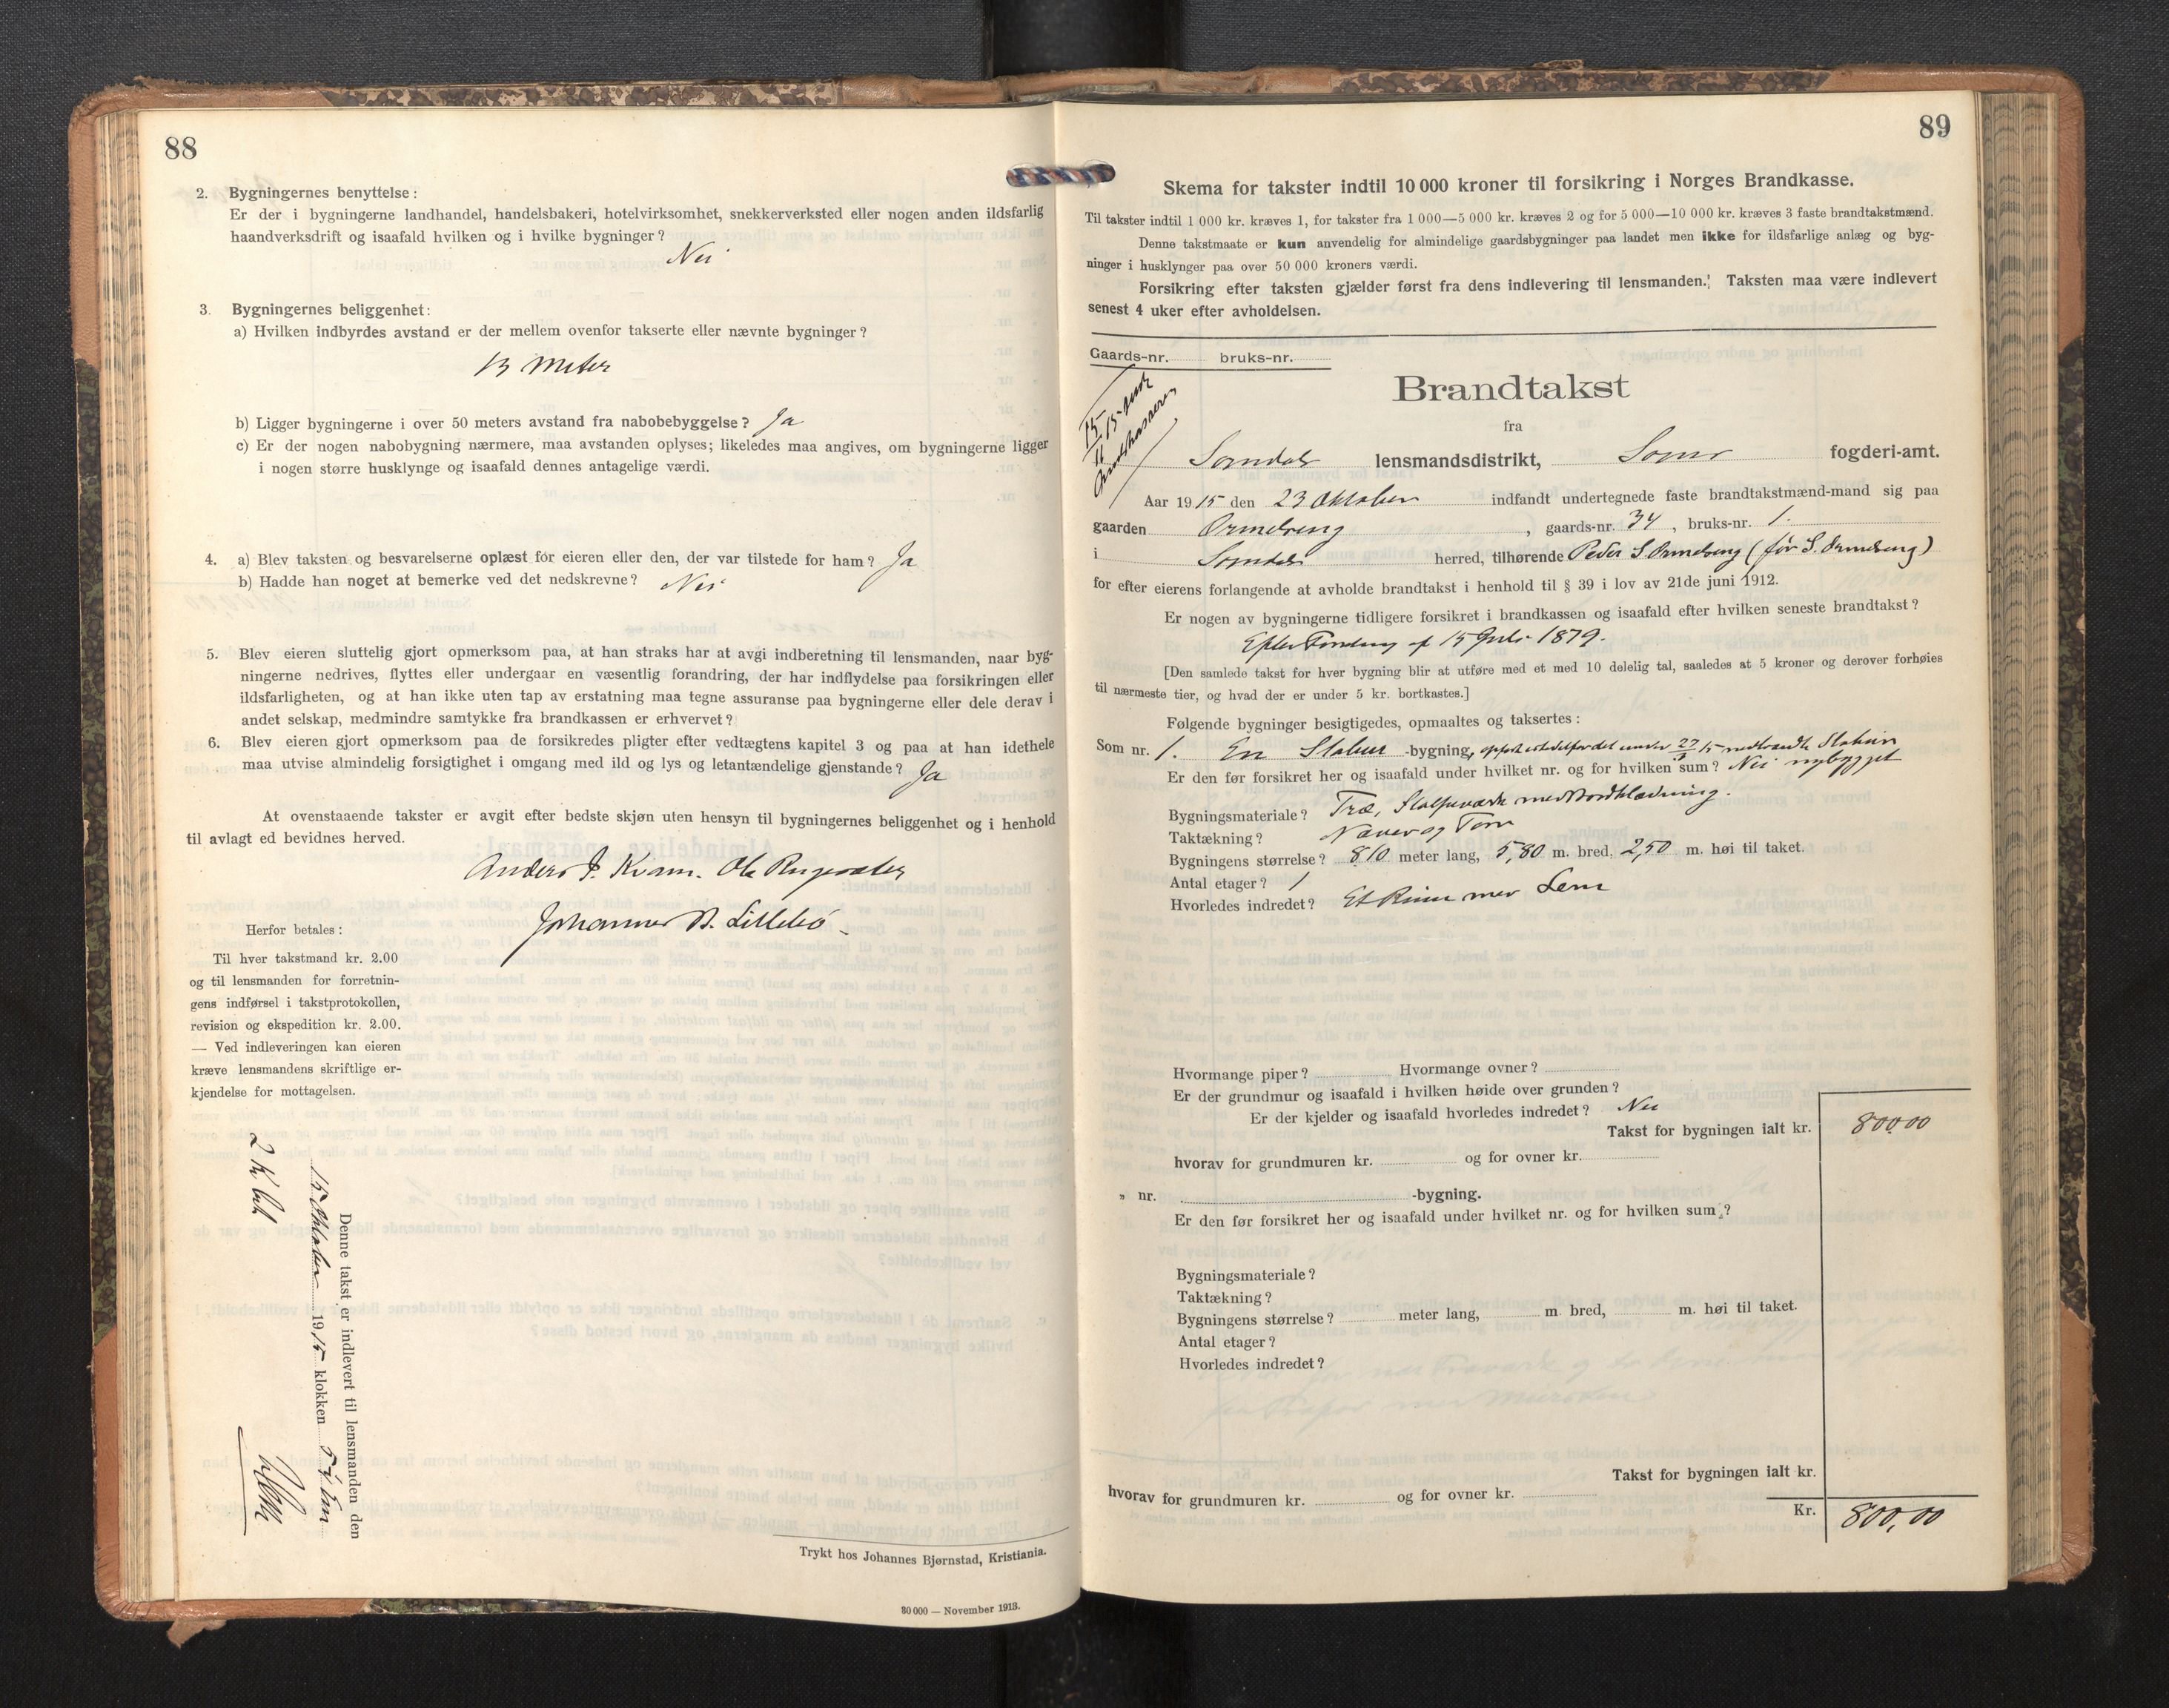 88
2. Bygningernes benyttelse:
Er der i bygningerne landhandel, handelsbakeri, hotelvirksomhet, snekkerverksted eller nogen anden ildsfarlig
haandverksdrift og isaafald hvilken og i hvilke bygninger?
Nei
3. Bygningernes beliggenhet:
a) Hvilken indbyrdes avstand er der mellem ovenfor takserte eller nævnte bygninger?
13 meter
b) Ligger bygningerne i over 50 meters avstand fra nabobebyggelse? Ja
c) Er der nogen nabobygning nærmere, maa avstanden oplyses; likeledes maa angives, om bygningerne ligger
i nogen større husklynge og isaafald dennes antagelige værdi.
4. a) Blev taksten og besvarelserne oplæst for eieren eller den, der var tilstede for ham? Ja
b) Hadde han noget at bemerke ved det nedskrevne? Nei
5. Blev eieren sluttelig gjort opmerksom paa, at han straks har at avgi indberetning til lensmanden, naar byg-
ningerne nedrives, flyttes eller undergaar en væsentlig forandring, der har indflydelse paa forsikringen eller
ildsfarligheten, og at han ikke uten tap av erstatning maa tegne assuranse paa bygningerne eller dele derav i
andet selskap, medmindre samtykke fra brandkassen er erhvervet?
6. Blev eieren gjort opmerksom paa de forsikredes pligter efter vedtægtens kapitel 3 og paa at han idethele
maa utvise almindelig forsigtighet i omgang med ild og lys og letantændelige gjenstande? Ja
At ovenstaaende takster er avgit efter bedste skjøn uten hensyn til bygningernes beliggenhet og i henhold
til avlagt ed bevidnes herved.
Anders J. Kvam. Ola
Johannes B. Lillebö
Herfor betales:
Til hver takstmand kr. 2.00
og til lensmanden for forretnin-
gens indførsel i takstprotokollen,
revision og ekspedition kr. 2.00.
— Ved indleveringen kan eieren
kræve lensmandens skriftlige er-
kjendelse for mottagelsen.
Denne takst er indlevert til lensmanden den
15 Oktober 1915 klokken 5
2 kr
Trykt hos Johannes Bjørnstad, Kristiania.
30 000 — November 1913.
89
Skema for takster indtil 10 000 kroner til forsikring i Norges Brandkasse.
Til takster indtil 1 000 kr. kræves 1, for takster fra 1 000—5 000 kr. kræves 2 og for 5 000—10 000 kr. kræves 3 faste brandtakstmænd.
Denne takstmaate er kun anvendelig for almindelige gaardsbygninger paa landet men ikke for ildsfarlige anlæg og byg-
ninger i husklynger paa over 50 000 kroners værdi.
Forsikring efter taksten gjælder først fra dens indlevering til lensmanden. Taksten maa være indlevert
senest 4 uker efter avholdelsen.
Gaards-nr. bruks-nr.
15/11 15
Brandtakst
fra
Sogndals lensmandsdistrikt, Sogns fogderi-amt.
Aar 1915 den 23 Oktober indfandt undertegnede faste brandtakstmænd-mand sig paa
gaarden Ormelreng, gaards-nr. 34, bruks-nr. 1.
i Sogndals herred, tilhørende Peder S. Ormelreng (før S. Ormelreng)
for efter eierens forlangende at avholde brandtakst i henhold til § 39 i lov av 21de juni 1912.
Er nogen av bygningerne tidligere forsikret i brandkassen og isaafald efter hvilken seneste brandtakst?
Efter Forretning af 15 Juli 1879.
[Den samlede takst for hver bygning blir at utføre med et med 10 delelig tal, saaledes at 5 kroner og derover forhøies
til nærmeste tier, og hvad der er under 5 kr. bortkastes.]
Følgende bygninger besigtigedes, opmaaltes og taksertes:
Som nr. 1. En Stabur -bygning, opført istedetfor det under 27/3 15 nedbrændte Stabur
Er den før forsikret her og isaafald under hvilket nr. og for hvilken sum? Nei nybygget
Bygningsmateriale? Træ, Stolpeværk med Bordklædning.
Taktækning? Næver og Torv
Bygningens størrelse? 8,10 meter lang, 5,80 m. bred, 2,50 m. høi til taket.
Antal etager? 1
Hvorledes indredet? Et Rum med Lem
Hvormange piper? Hvormange ovner?
Er der grundmur og isaafald i hvilken høide over grunden?
Er der kjelder og isaafald hvorledes indredet? Nei
Takst for bygningen ialt kr. 800,00
hvorav for grundmuren kr. og for ovner kr.
„ nr. -bygning.
Er den før forsikret her og isaafald under hvilket nr. og for hvilken sum?
Bygningsmateriale?
Taktækning?
Bygningens størrelse? meter lang, m. bred, m. høi til taket.
Antal etager?
Hvorledes indredet?
Takst for bygningen ialt kr.
hvorav for grundmuren kr. og for ovner kr.
Kr. 800,00